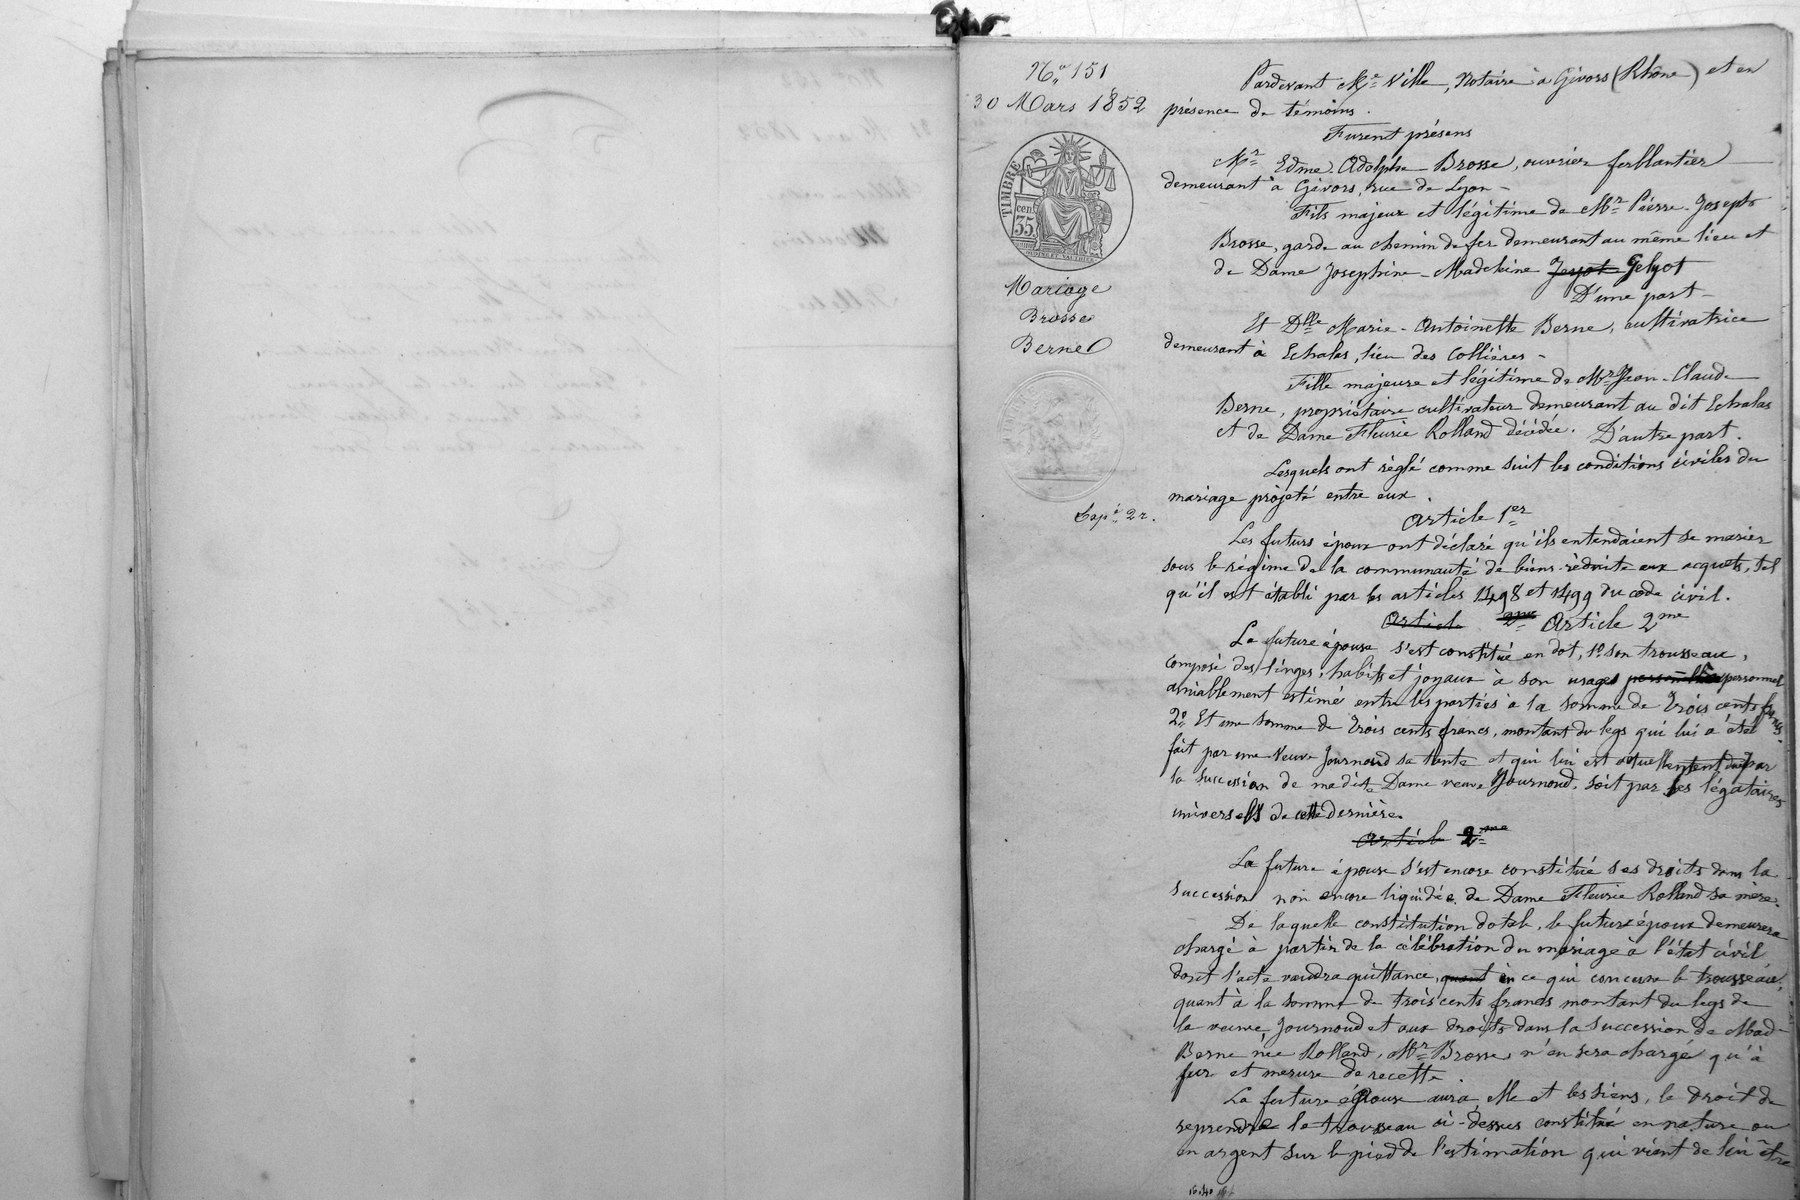 N° 151
30 Mars 1852
TIMBRE
cen.
35.
Mariage
Brosse
Berne
Exp.é 2 r.
Pardevant Me Ville, Notaire à Givors (Rhône) et en
présence de témoins.
Furent présens
Mr Edme Adolphe Brosse, ouvrier ferblantier
demeurant à Givors, rue de Lyon -
Fils majeur et légitime de Mr Pierre-Joseph
Brosse, garde au chemin de fer demeurant au même lieu et
de Dame Josephine-Madeleine Gelyot
D'une part -
Et Dlle Marie-Antoinette Berne, cultivatrice
demeurant à Echalas, lieu des Collières -
Fille majeure et légitime de Mr Jean-Claude
Berne, propriétaire cultivateur demeurant au dit Echalas
et de Dame Fleurie Rolland décédée. D'autre part.
Lesquels ont règlé comme suit les conditions civiles du
mariage projeté entre eux.
Article 1er
Les futurs époux ont déclaré qu'ils entendaient se marier
sous le régime de la communauté de biens réduite aux acquets, tel
qu'il est établi par les articles 1498 et 1499 du code civil.
Article 2me Article 2me
La future épouse s'est constitué en dot, 1° son trousseau,
composé des linges, habits et joyaux à son usage personnel
amiablement estimé entre les parties à la somme de Trois cents francs.
2° Et une somme de Trois cents francs, montant du legs qui lui a été
fait par une Veuve Journoud sa tante et qui lui est actuellement due par
la succession de madite Dame veuve Journoud, soit par les légataires
universels de cette dernière.
Article 2me
La future épouse s'est encore constitué ses droits dans la
succession non encore liquidée de Dame Fleurie Rolland sa mère.
De laquelle constitution dotale, le futur époux demeurera
chargé à partir de la célébration du mariage à l'état civil
dont l'acte vaudra quittance, quant en ce qui concerne le trousseau,
quant à la somme de trois cents francs montant du legs de
la veuve Journoud et aux droits dans la succession de Mad-
Berne née Rolland, Mr Brosse n'en sera chargé qu'à
fur et mesure de recette.
La future époux aura, elle et les siens, le droit de
reprendre le trousseau ci-dessus constitué en nature ou
en argent sur le pied de l'estimation qui vient de lui être